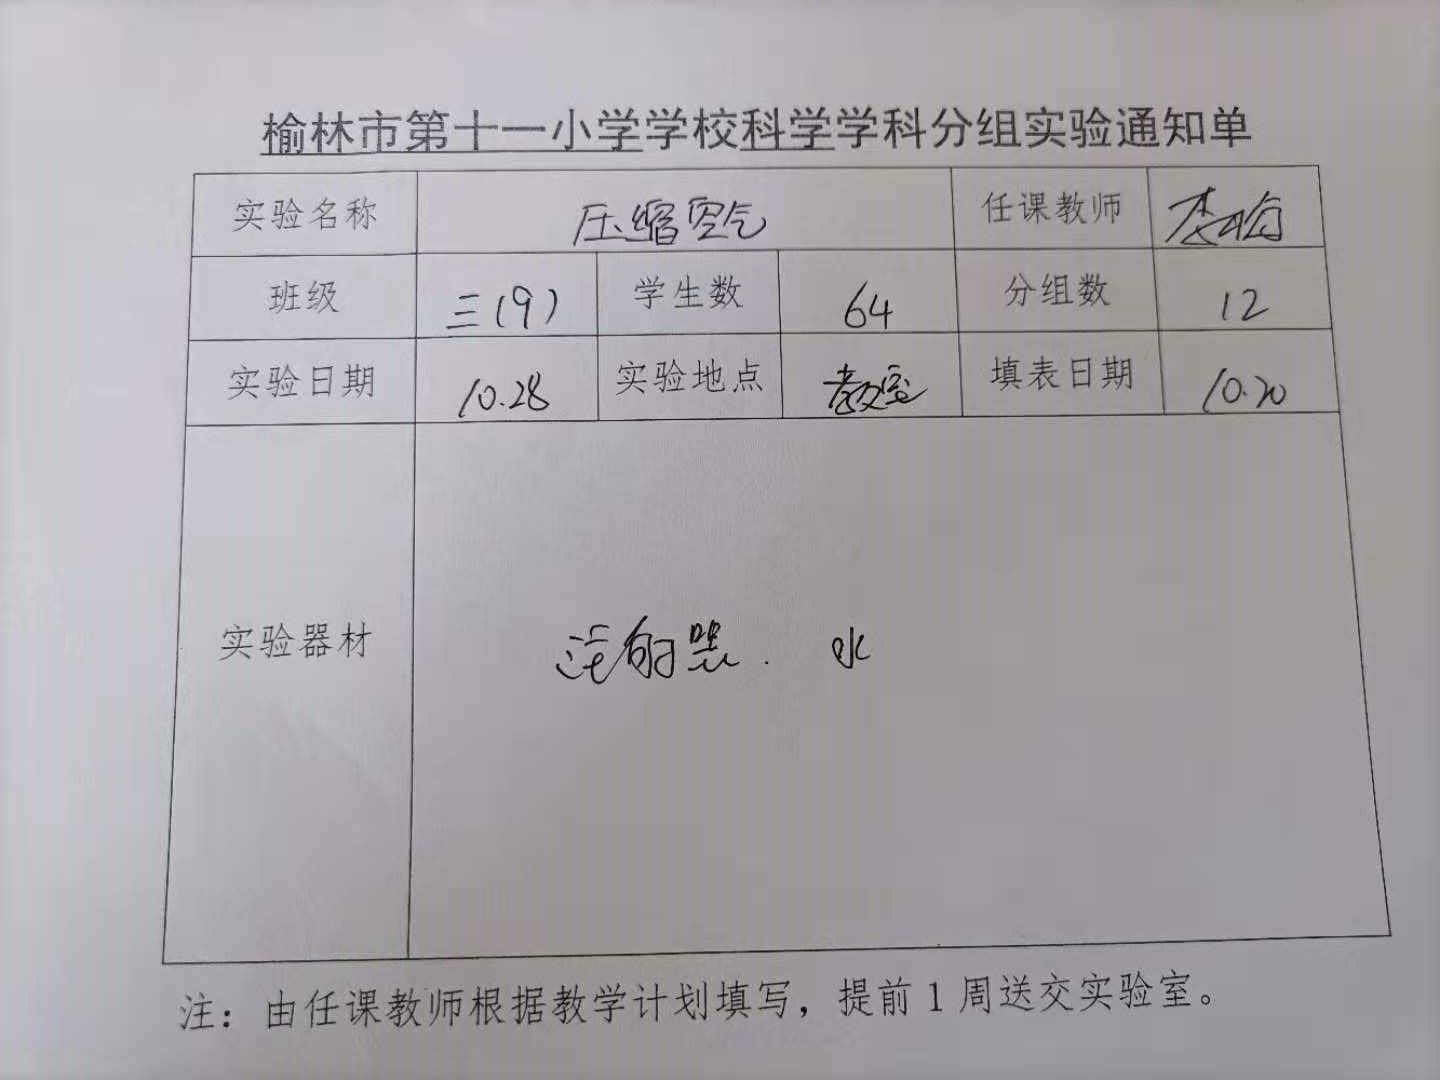 榆林市第十一小学学校科学学科分组实验通知单
实验名称 压缩空气 任课教师
班级 三(9) 学生数 64 分组数 12
实验日期 10.28 实验地点 教室 填表日期 10.20
实验器材 注射器. 水
注：由任课教师根据教学计划填写，提前1周送交实验室。